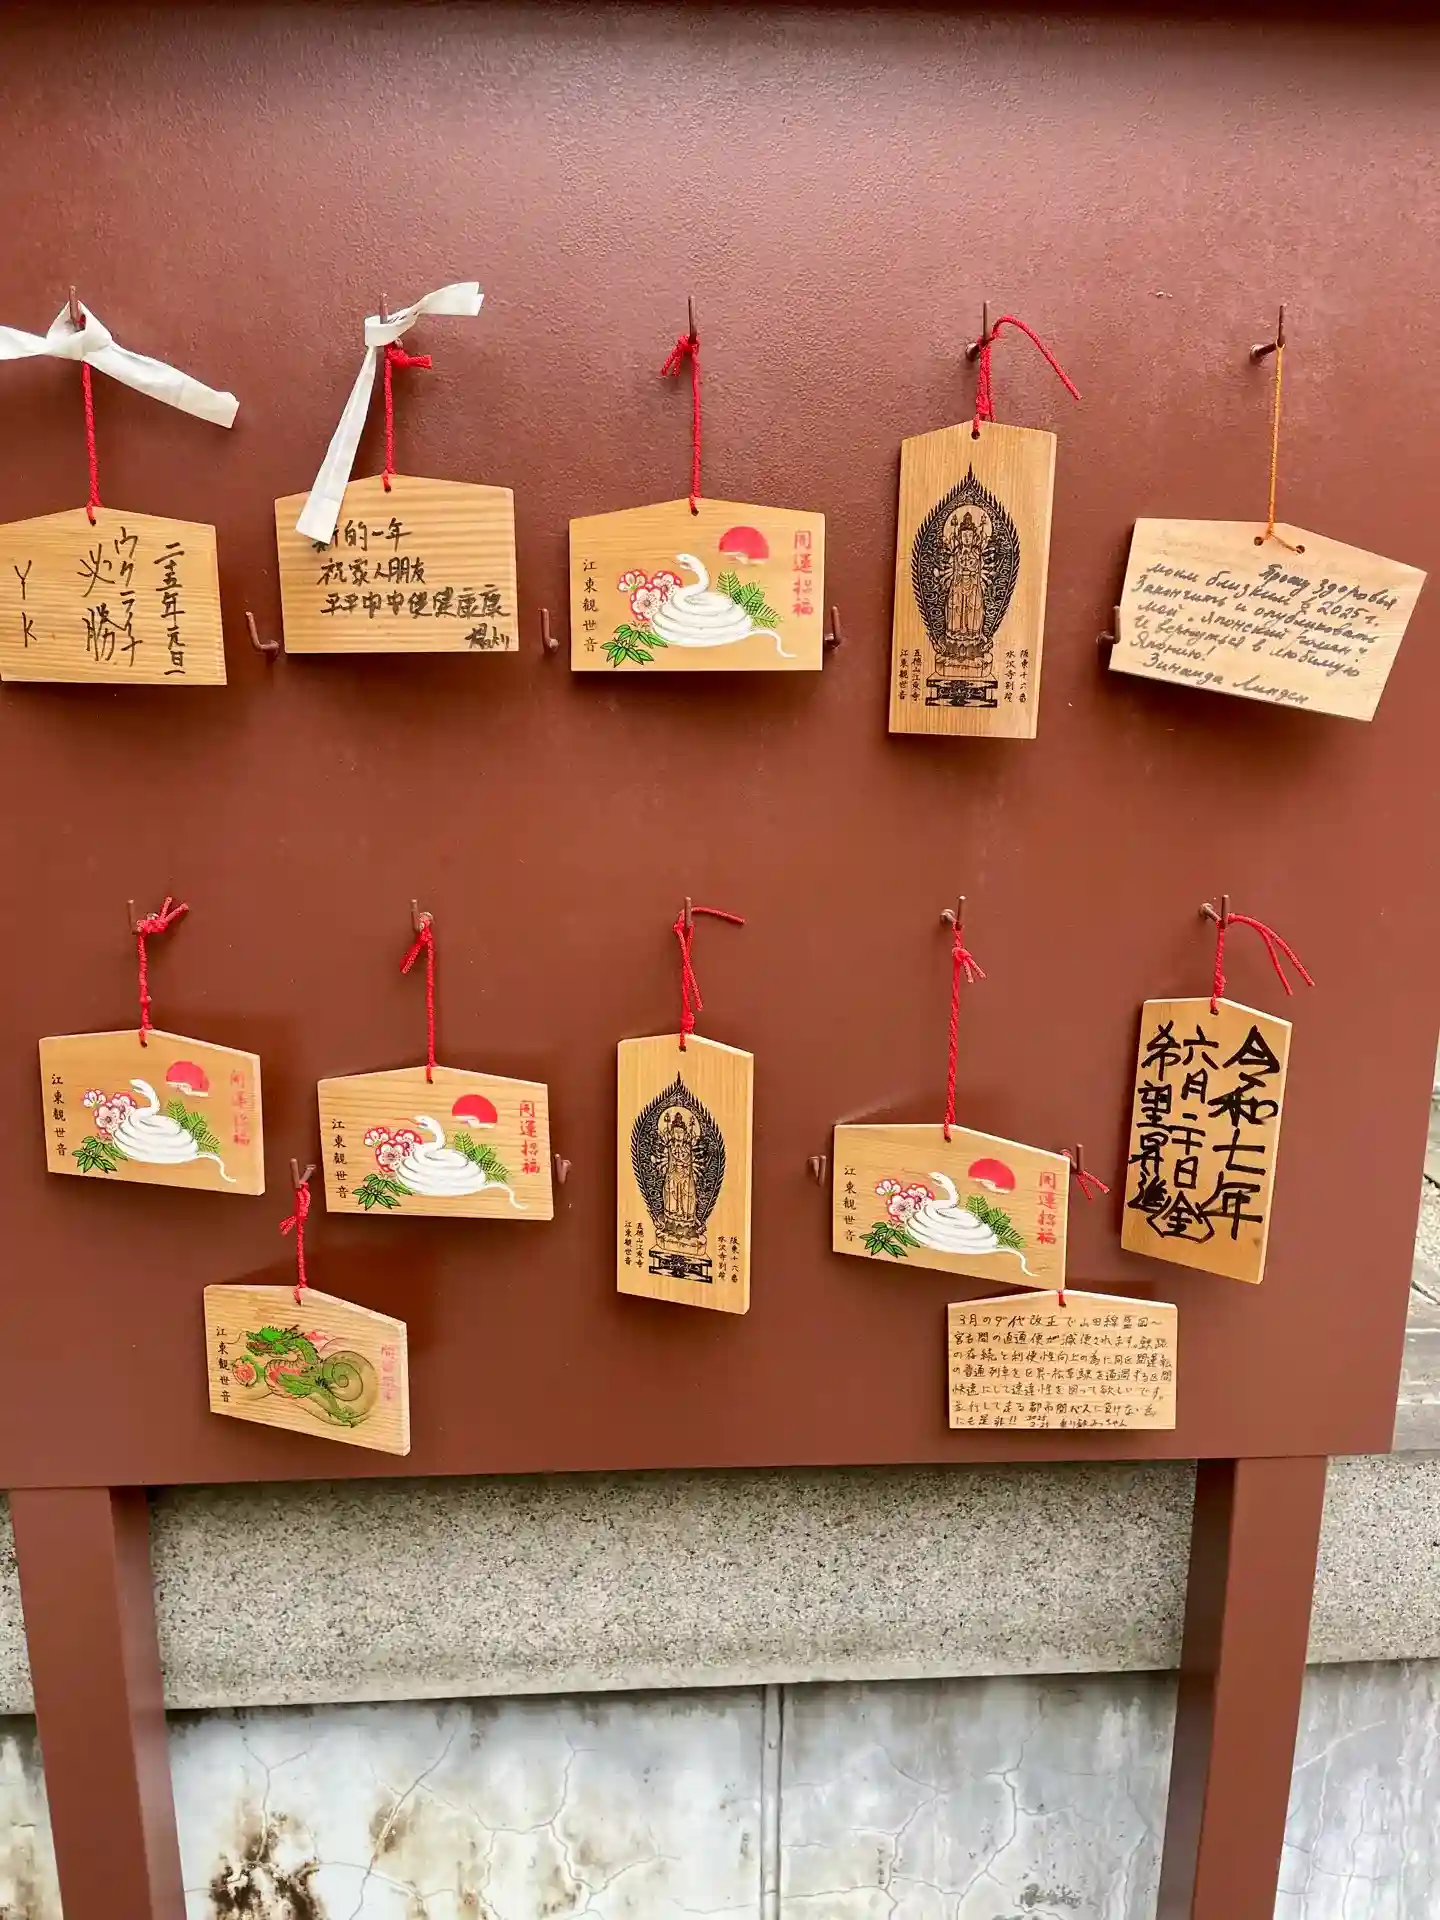 二十五年元旦
ウクライナ
必勝
Y K
新的一年
祝家人朋友
平平安安健健康康
開運招福
江東観世音
阪東十六番
水沢寺別院
五徳山江東寺
江東観世音
Прошу здоровья
моим близким в 2025 г.
Закончить и опубликовать
мой „Японский роман“
и вернуться в любимую
Японию!
Зинаида Линден
開運招福
江東観世音
開運招福
江東観世音
阪東十六番
水沢寺別院
五徳山江東寺
江東観世音
開運招福
江東観世音
令和七年
六月二十日(金)
希望昇進
江東観世音
3月のダイヤ改正で山田線盛岡〜
宮古間の直通便が減便されます。鉄路
の存続と利便性向上の為に同区間運転
の普通列車を区界・松草駅を通過する区間
快速にして速達性を図って欲しいです。
並行して走る都市間バスに負けない為
にも是非!! 2025 2.21 乗り鉄みっちゃん